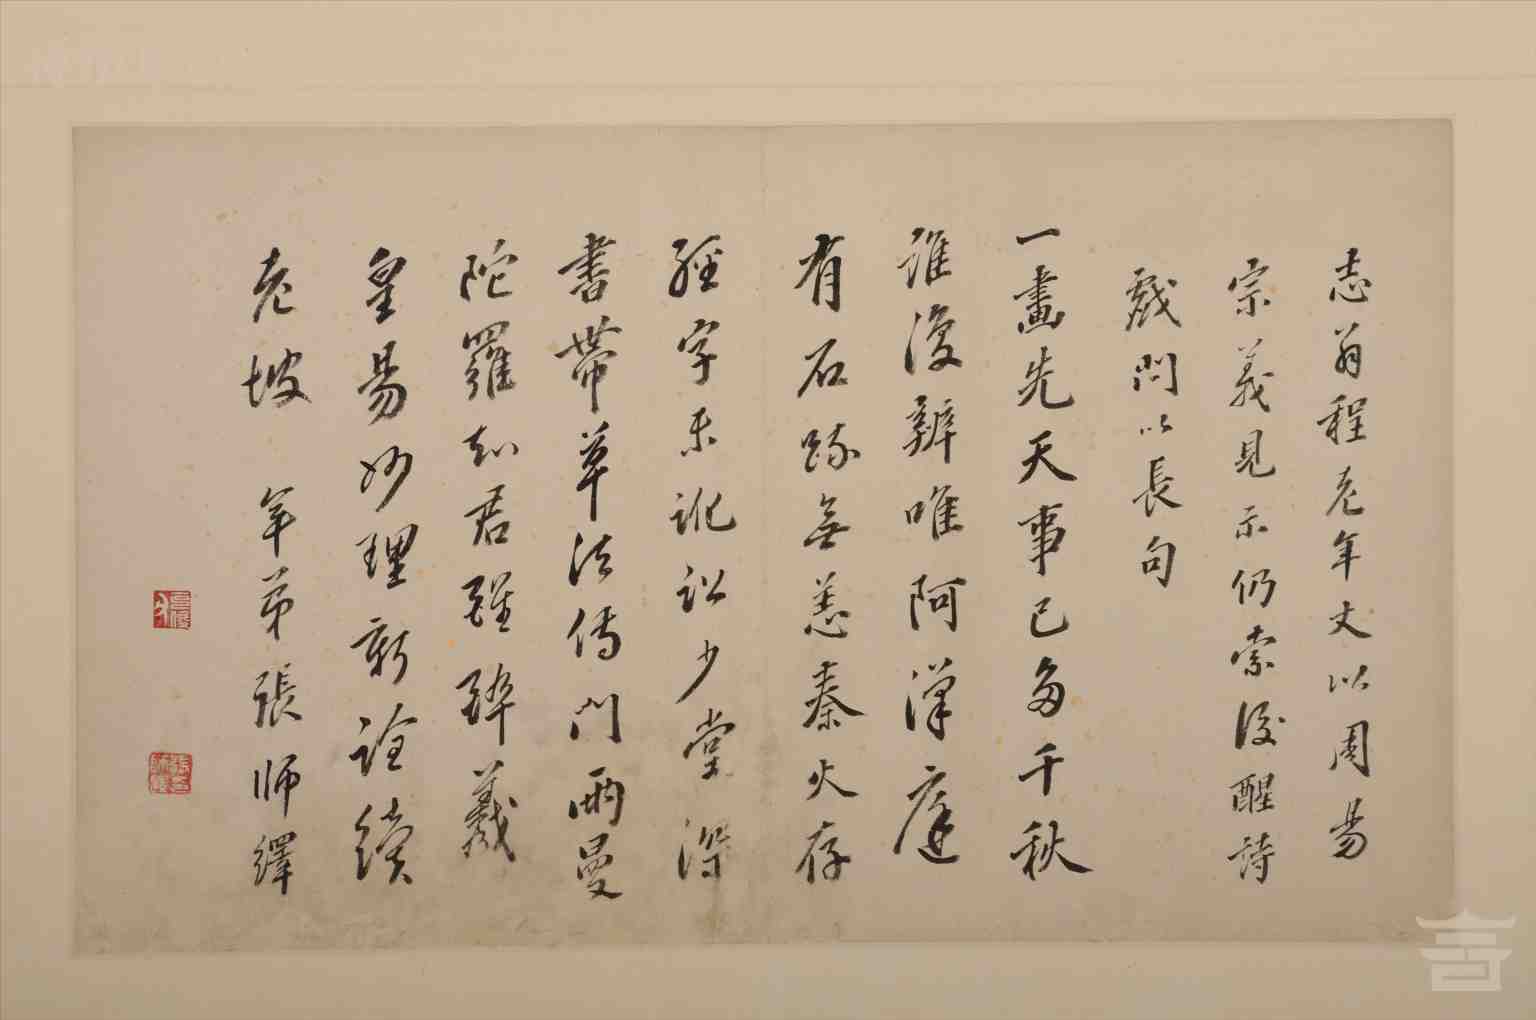 志翁程老年丈以周易
宗義見示仍索後醒詩
戲問以長句
一畫先天事已多千秋
誰復辨唯阿漢庭
有石疏無恙秦火存
經字未訛訟少堂深
書帶草法傳門雨曼
陀羅知君雖醉羲
皇易妙理新詮續
老坡 年弟張師繹